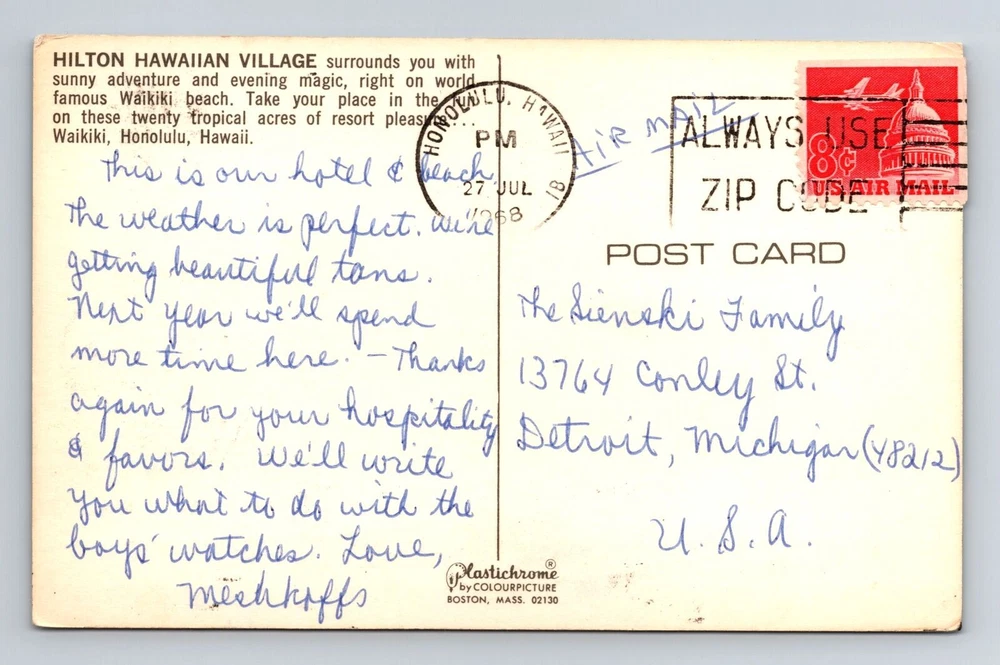 HILTON HAWAIIAN VILLAGE surrounds you with
sunny adventure and evening magic, right on world
famous Waikiki beach. Take your place in the sun
on these twenty tropical acres of resort pleas...
Waikiki, Honolulu, Hawaii.
This is our hotel & beach
The weather is perfect. We're
getting beautiful tans.
Next year we'll spend
more time here. – Thanks
again for your hospitality
& favors. We'll write
you what to do with the
boys' watches. Love,
Meshkoffs
HONOLULU, HAWAII
PM
27 JUL
1968
1B
AIR MAIL
ALWAYS USE
ZIP CODE
8¢
US AIR MAIL
POST CARD
The Sienski Family
13764 Conley St.
Detroit, Michigan (48212)
U.S.A.
Plastichrome®
by COLOURPICTURE
BOSTON, MASS. 02130